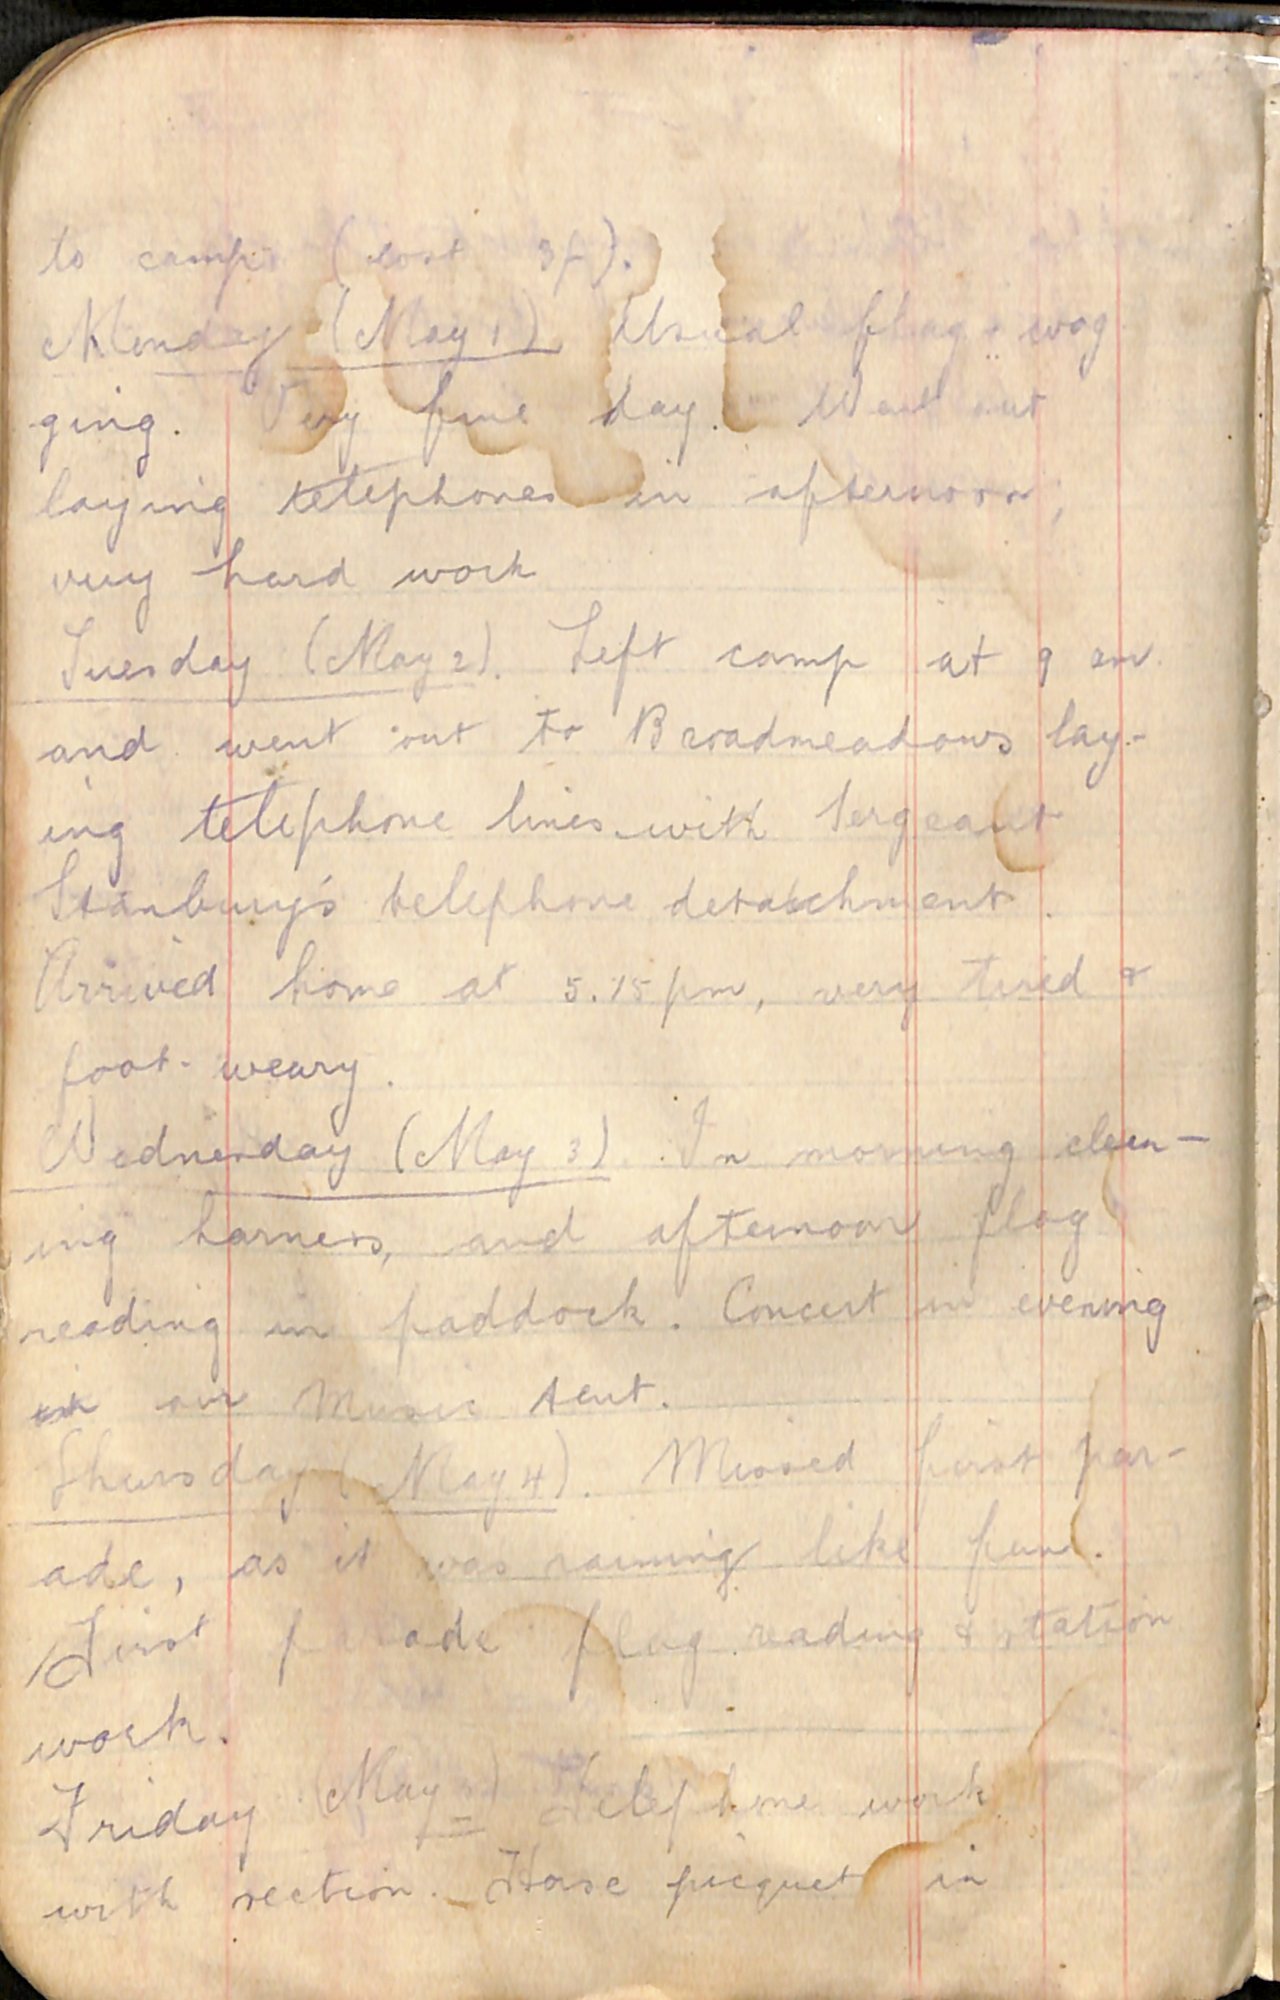 to camp (cost 3/-).
Monday (May 1) Usual flag-wag
ging. Very fine day. Went out
laying telephones in afternoon;
very hard work
Tuesday (May 2). Left camp at 9 am
and went out to Broadmeadows lay-
ing telephone lines with Sergeant
Stanbury's telephone detatchment.
Arrived home at 5.15 pm, very tired &
foot-weary.
Wednesday (May 3). In morning clean-
ing harness, and afternoon flag
reading in paddock. Concert in evening
in our Music tent.
Thursday (May 4). Missed first par-
ade, as it was raining like fun.
First parade flag reading & station
work.
Friday (May 5) Telephone work
with section. Horse picquet in